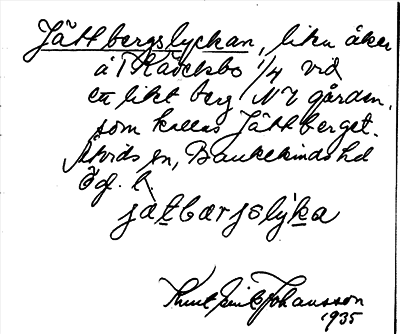 Jättbergslyckan, liten åker
å Kåeksbo 1/4 vid
ett litet berg NV gården,
som kallas Jättberget.
Åtvids sn, Bankekinds hd
Ög. l.
jætbærjslýka
Knut Erik Johansson
1935